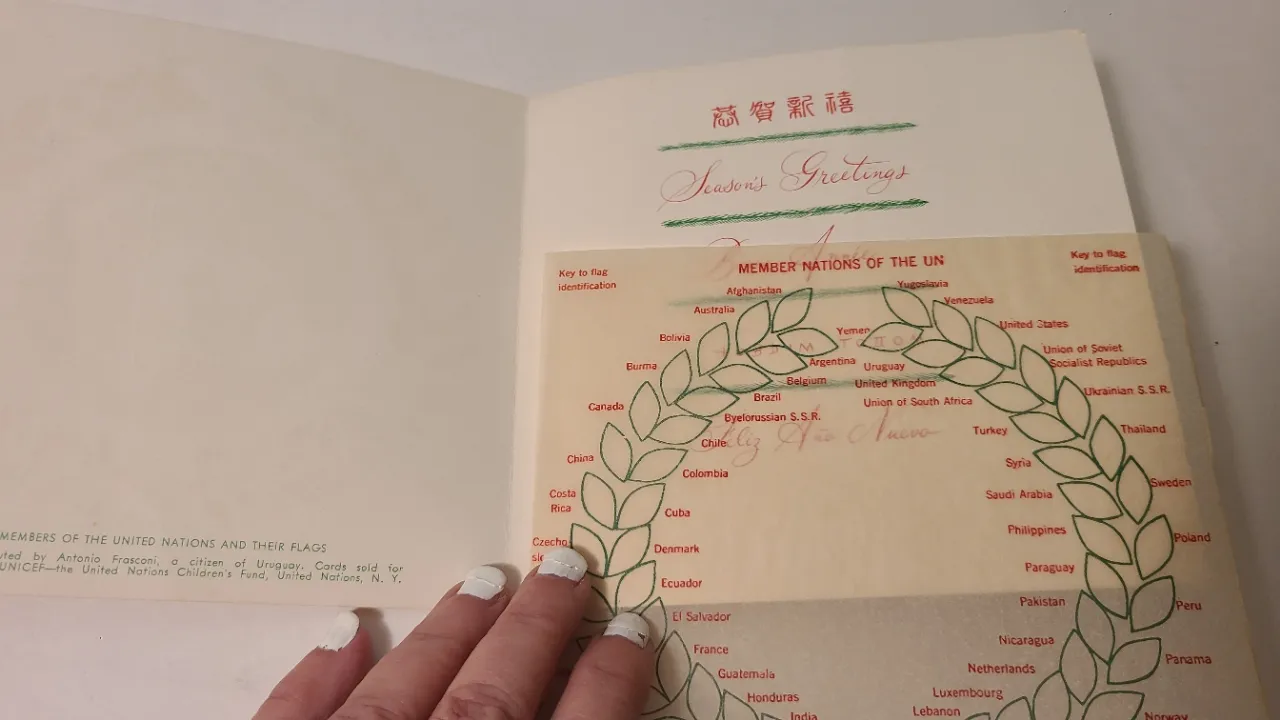 恭賀新禧
Season's Greetings
MEMBER NATIONS OF THE UN
Key to flag
identification
Key to flag
identification
Afghanistan
Yugoslavia
Australia
Venezuela
Bolivia
Yemen
United States
Burma
Argentina
Uruguay
Union of Soviet
Socialist Republics
Belgium
United Kingdom
Canada
Brazil
Union of South Africa
Ukrainian S.S.R.
Byelorussian S.S.R.
Feliz Año Nuevo
China
Chile
Turkey
Thailand
Colombia
Syria
Costa
Rica
Cuba
Saudi Arabia
Sweden
Czecho
Denmark
Philippines
Poland
Ecuador
Paraguay
El Salvador
Pakistan
Peru
France
Nicaragua
Panama
Guatemala
Netherlands
Honduras
Luxembourg
India
Lebanon
Norway
MEMBERS OF THE UNITED NATIONS AND THEIR FLAGS
by Antonio Frasconi, a citizen of Uruguay. Cards sold for
UNICEF—the United Nations Children's Fund, United Nations, N. Y.